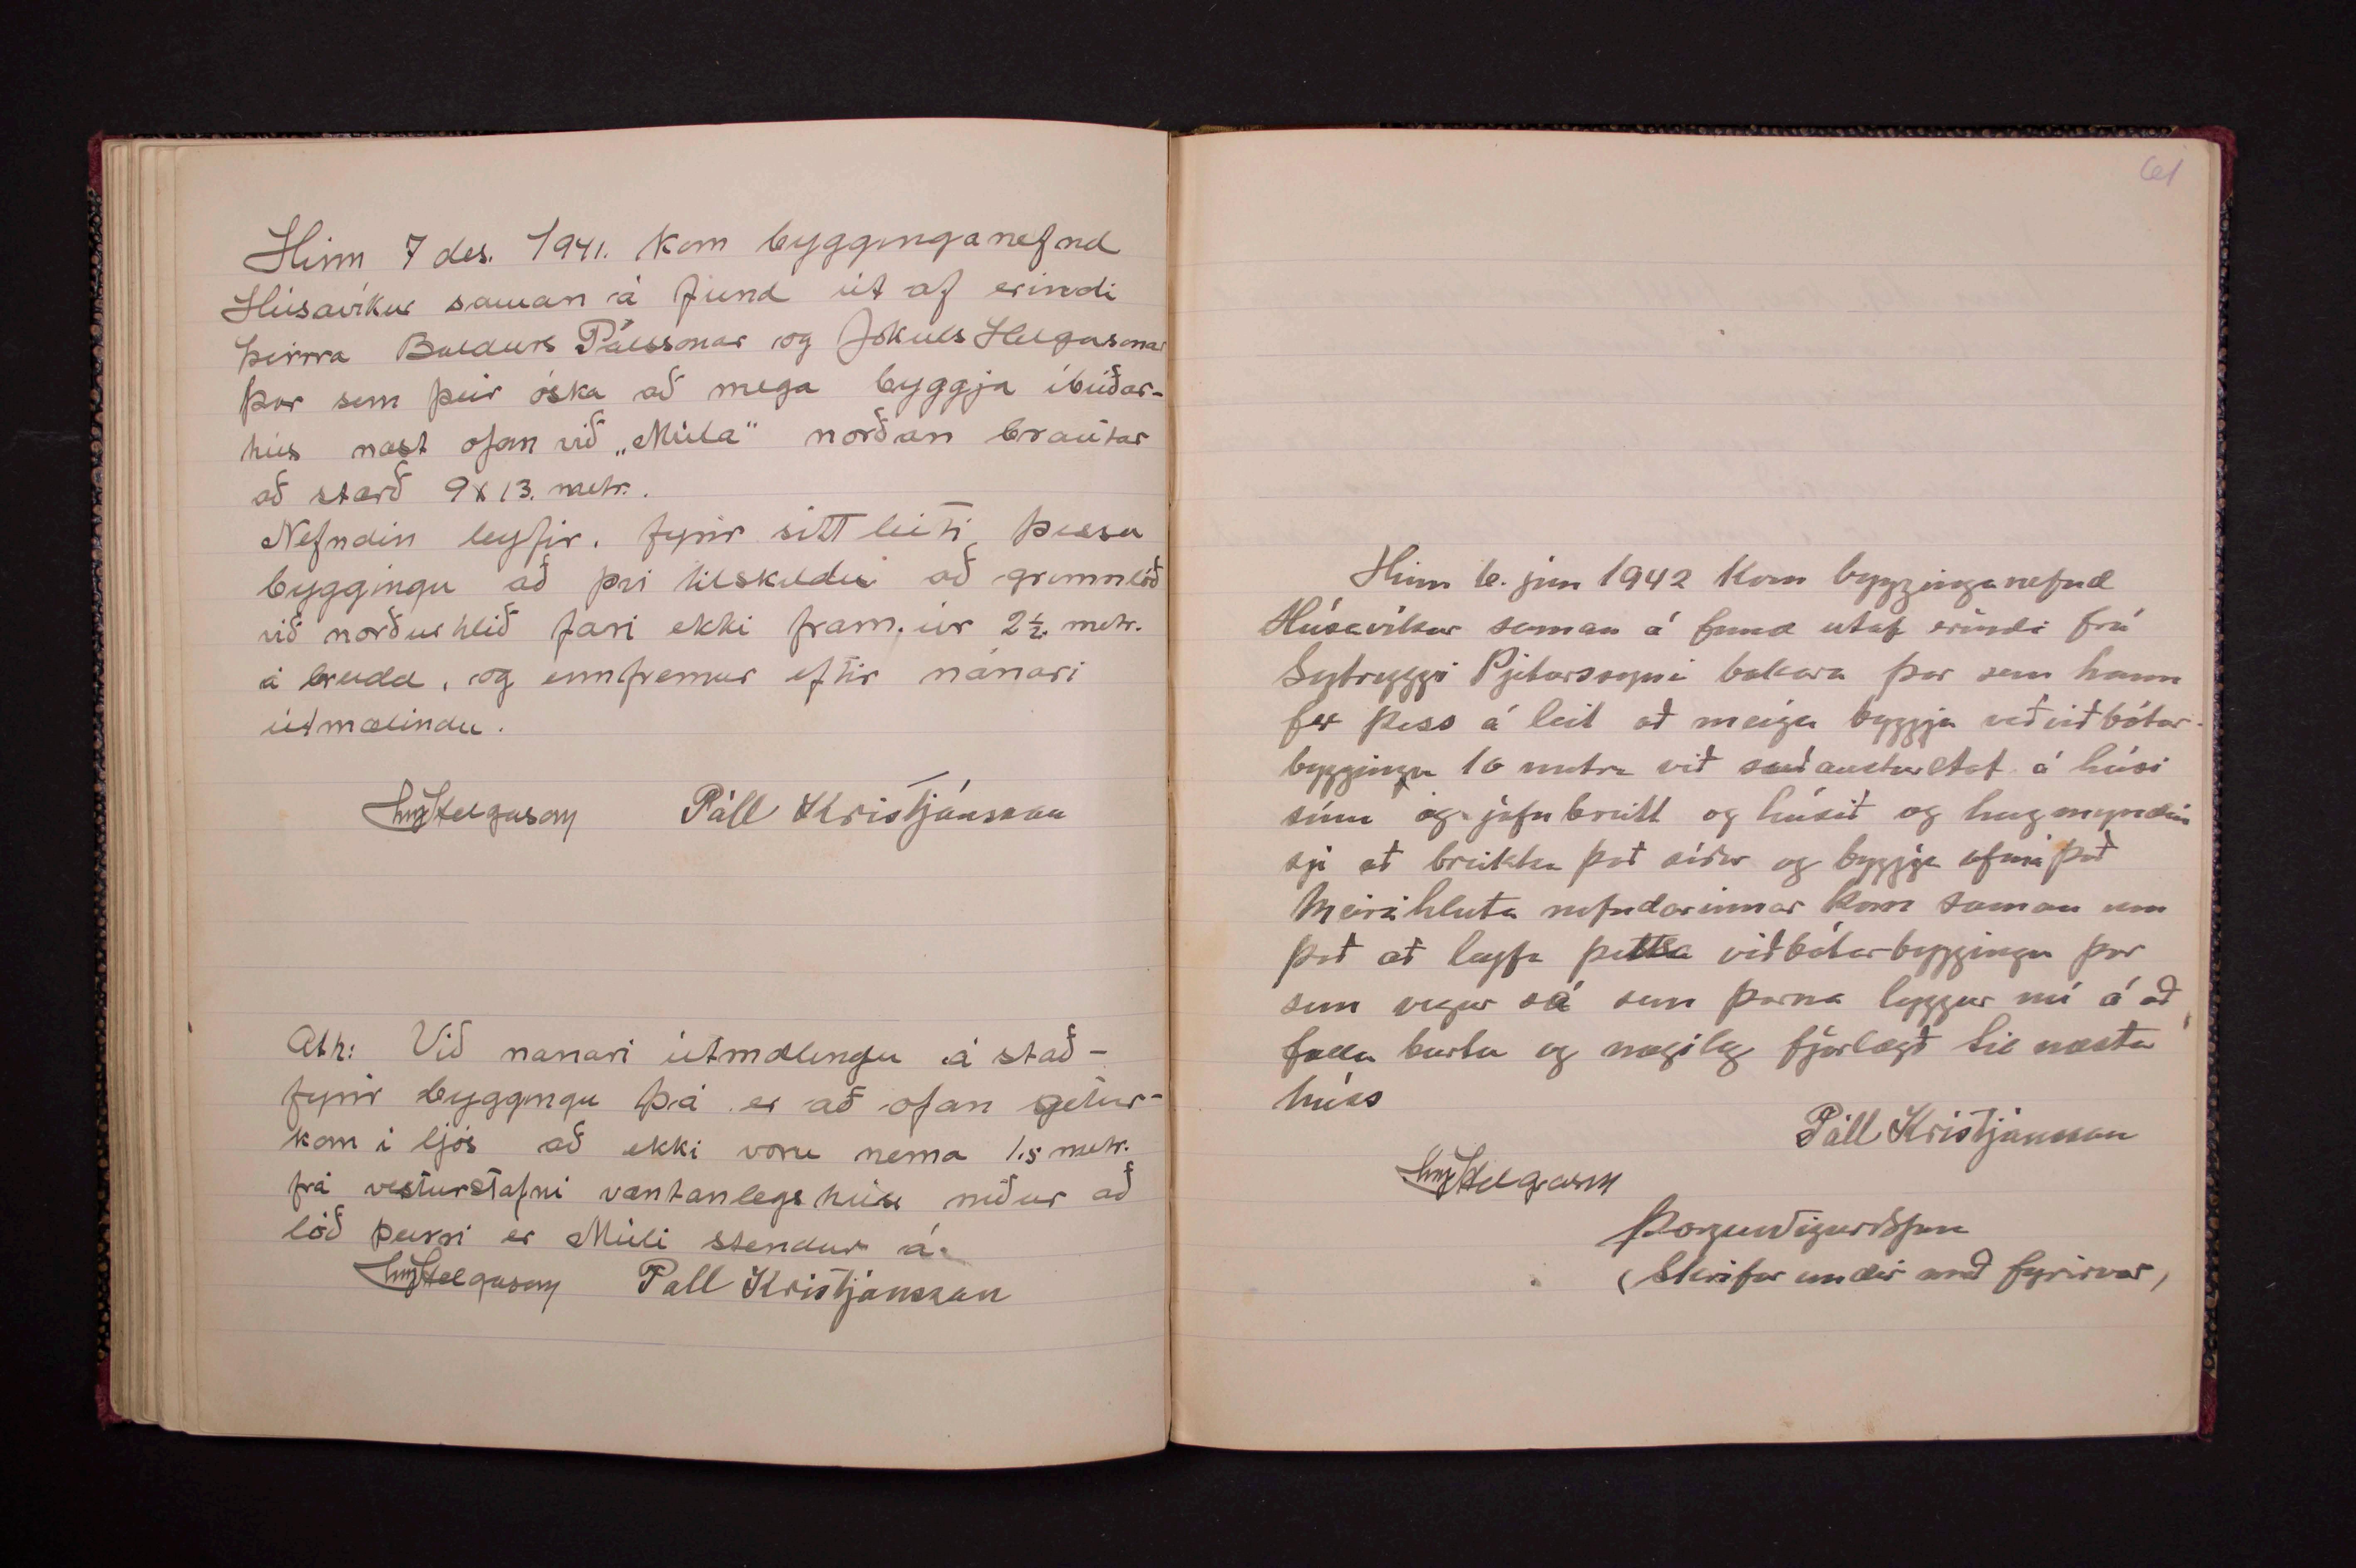 Hinn 7 des. 1941. kom bygginganefnd
Húsavíkur saman á fund út af erindi
þeirra Baldurs Pálssonar og Jökuls Helgasonar
þar sem þeir óska að mega byggja íbúðar-
hús næst ofan við „Múla" norðan brautar
að stærð 9x13. metr.
Nefndin leyfir, fyrir sitt leiti þessa
byggingu að því tilskildu að grunnlóð
við norðurhlið fari ekki fram úr 2½ metr.
á breidd, og ennfremur eftir nánari
útmælindu.
Helgason Páll Kristjánsson
Ath: Við nanari útmælingu á stað-
fyrir byggingu þá er að ofan getur-
kom í ljós að ekki voru nema 1.5 metr.
frá vesturstafni væntanlegs húss niður að
lóð þeirri er Múli stendur á.
Helgason Páll Kristjánsson
61
Hinn 6. jún 1942 kom bygginganefnd
Húsavíkur saman á fund utaf erindi frá
Sigtryggi Pjeturssyni bakara þar sem hann
fer þess á leit að meiga byggja viðbótar-
byggingu 10 metra við suðausturstaf á húsi
sínu og jafn breitt og húsið og hugmyndin
sje at breikka það síðar og byggja ofaná það
Meirihluta nefndarinnar kom saman um
það at leyfa þessa viðbótarbyggingu þar
sem vegur sá sem þarna liggur nú á að
falla burtu og nægileg fjarlægð til næsta
húss
Páll Kristjánsson
Helgason
(Skrifar undir með fyrirvar)